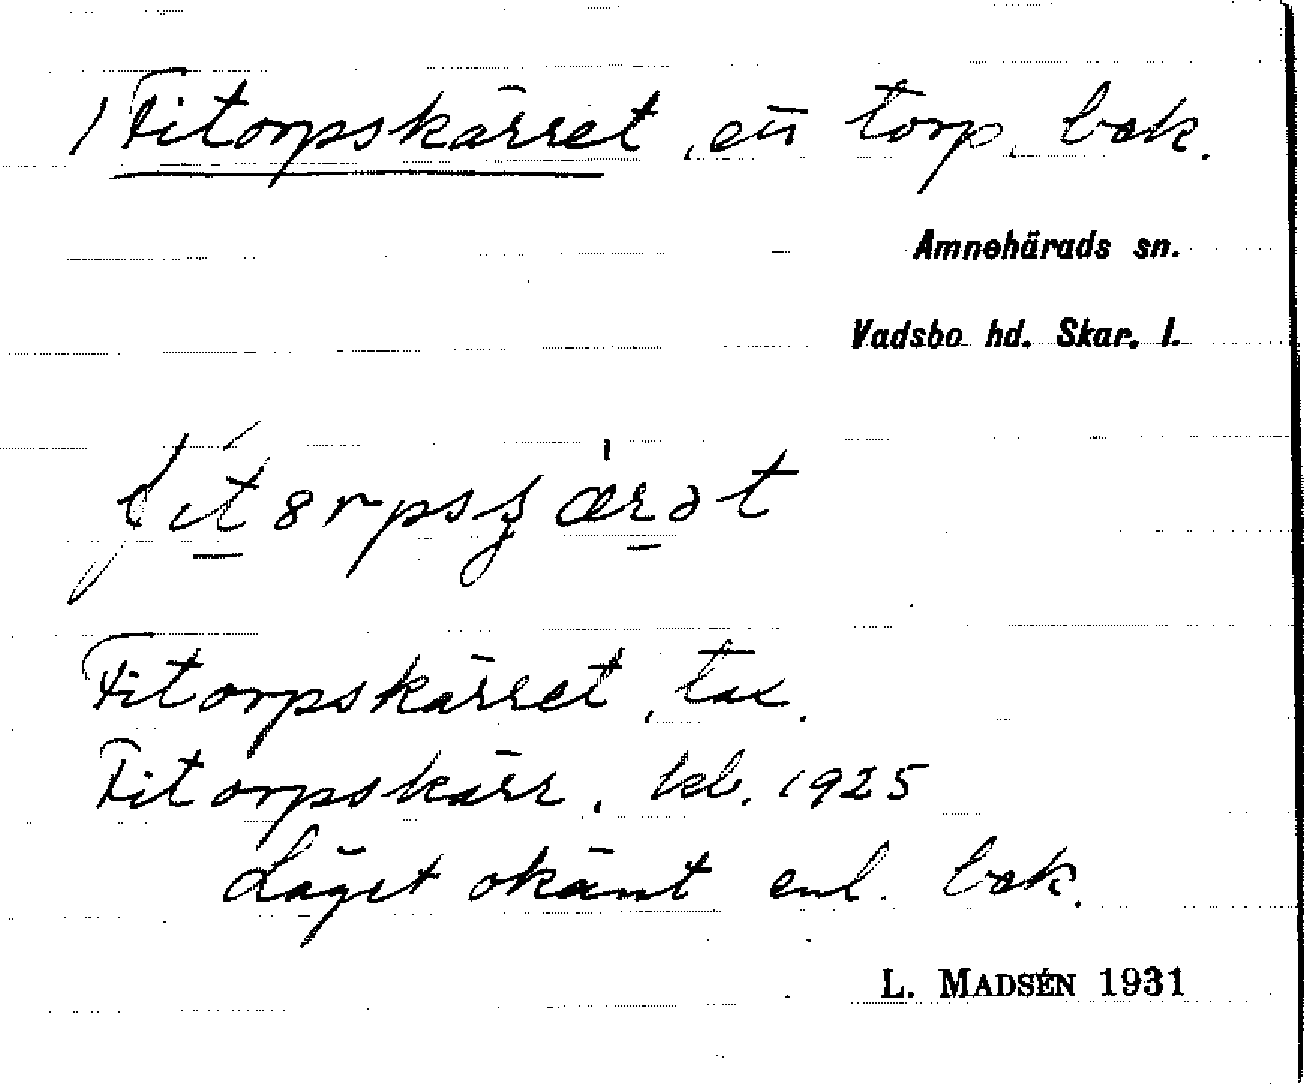 / Fitorpskärret, ett torp, bek.
Amnehärads sn.
Vadsbo hd. Skar. l.
Fitorpskärret, tax.
Fitorpskärr, kb. 1925
Läget okänt enl. bek.
L. MADSÉN 1931